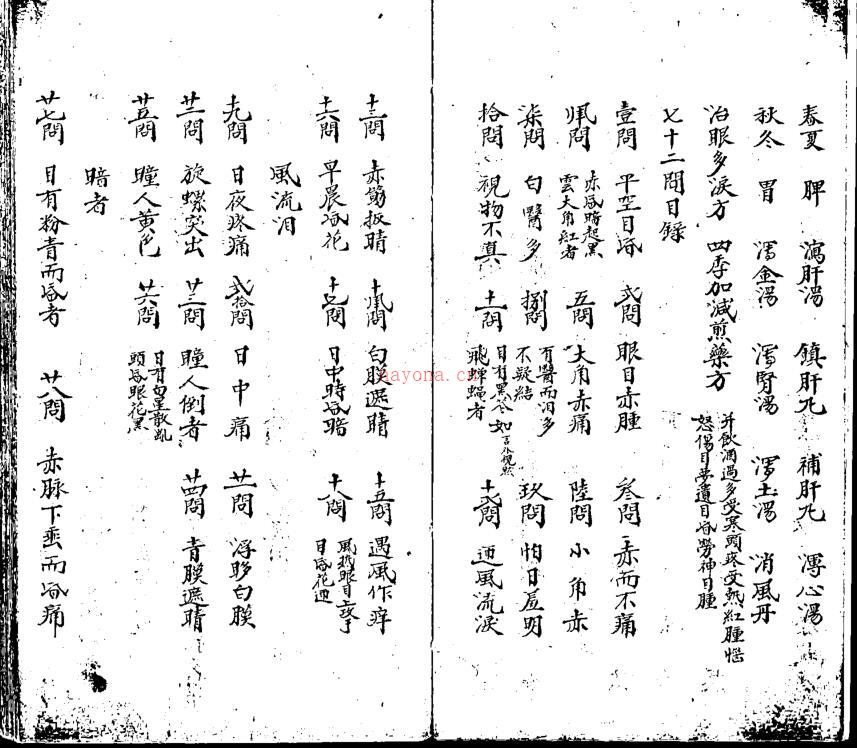 春夏 脾 瀉肝湯 鎮肝丸 補肝丸 瀉心湯
秋冬 胃 瀉金湯 瀉腎湯 瀉土湯 消風丹
治眼多淚方 四季加減煎藥方 并飲酒過多受寒頭疼受熱紅腫惱怒傷目夢遺目昏勞神目腫
七十二問目錄
壹問 平空目昏 弍問 眼目赤腫 叁問 赤而不痛
肆問 赤昏暗起黑雲大角紅者 五問 大角赤痛 陸問 小角赤
柒問 白醫多 捌問 有醫而泪多不凝結 玖問 怕日羞明
拾問 視物不真 十一問 目有黑冬如飛蝉蠅者 十弍問 迎風流淚
十三問 赤筋扳睛 十四問 白膜遮睛 十五問 遇風作痒
十六問 早晨昏花 十七問 日中時昏暗 十八問 風熱眼目昏花迎
風流泪
十九問 日夜疼痛 弍拾問 日中痛 廿一問 浮眵白膜
廿二問 旋螺突出 廿三問 瞳人倒者 廿四問 青膜遮睛
廿五問 瞳人黄色 廿六問 目有白星散乱頭昏眼花黑
暗者
廿七問 目有粉青而昏者 廿八問 赤脉下垂而昏痛
nayona.cn